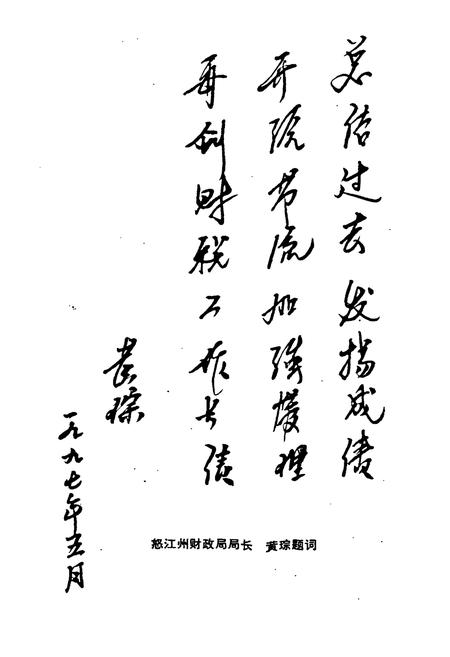 总结过去发扬成绩
开源节流加强管理
再创财税工作绩
黄琮
一九九七年五月
怒江州财政局局长 黄琮题词